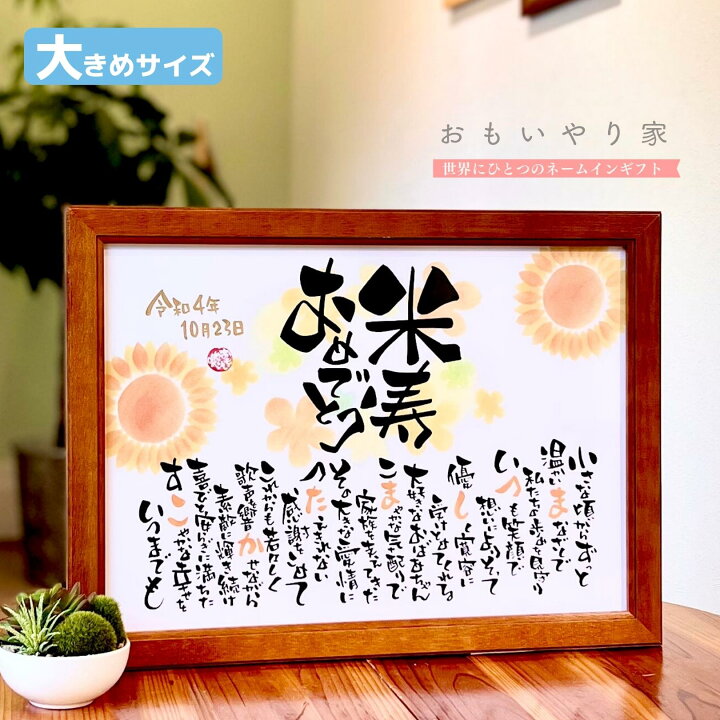 大きめサイズ
おもいやり家
世界にひとつのネームインギフト
米寿
おめでとう
令和4年
10月23日
小さな頃からずっと
温かいまなざしで
私たちの歩みを見守り
いつも笑顔で
想いによりそって
優しく寛容に
受けとめてくれる
大好きなおばあちゃん
こまやかな気配りで
家族を支えてきた
その大きな愛情に
つたえきれない
感謝をこめて
これからも若々しく
歌声を響かせながら
素敵に輝き続け
喜びと安らぎに満ちた
すこやかな幸せを
いつまでも